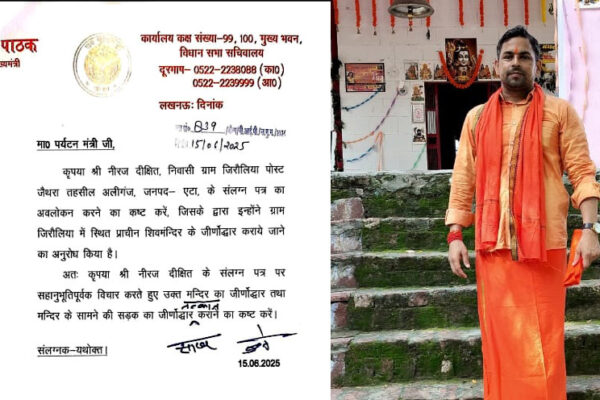 पाठक
कार्यालय कक्ष संख्या-99, 100, मुख्य भवन,
विधान सभा सचिवालय
दूरभाष- 0522-2238088 (का0)
0522-2239999 (आ0)
लखनऊः दिनांक
839
15/06/2025
मा0 पर्यटन मंत्री जी,
कृपया श्री नीरज दीक्षित, निवासी ग्राम जिरौलिया पोस्ट
जैथरा तहसील अलीगंज, जनपद- एटा, के संलग्न पत्र का
अवलोकन करने का कष्ट करें, जिसके द्वारा इन्होंने ग्राम
जिरौलिया में स्थित प्राचीन शिवमंन्दिर के जीर्णोद्धार कराये जाने
का अनुरोध किया है।
अतः कृपया श्री नीरज दीक्षित के संलग्न पत्र पर
सहानुभूतिपूर्वक विचार करते हुए उक्त मन्दिर का जीर्णोद्धार तथा
मन्दिर के सामने की सड़क का जीर्णोद्धार तत्काल कराने का कष्ट करें।
संलग्नक-यथोक्त।
15.06.2025